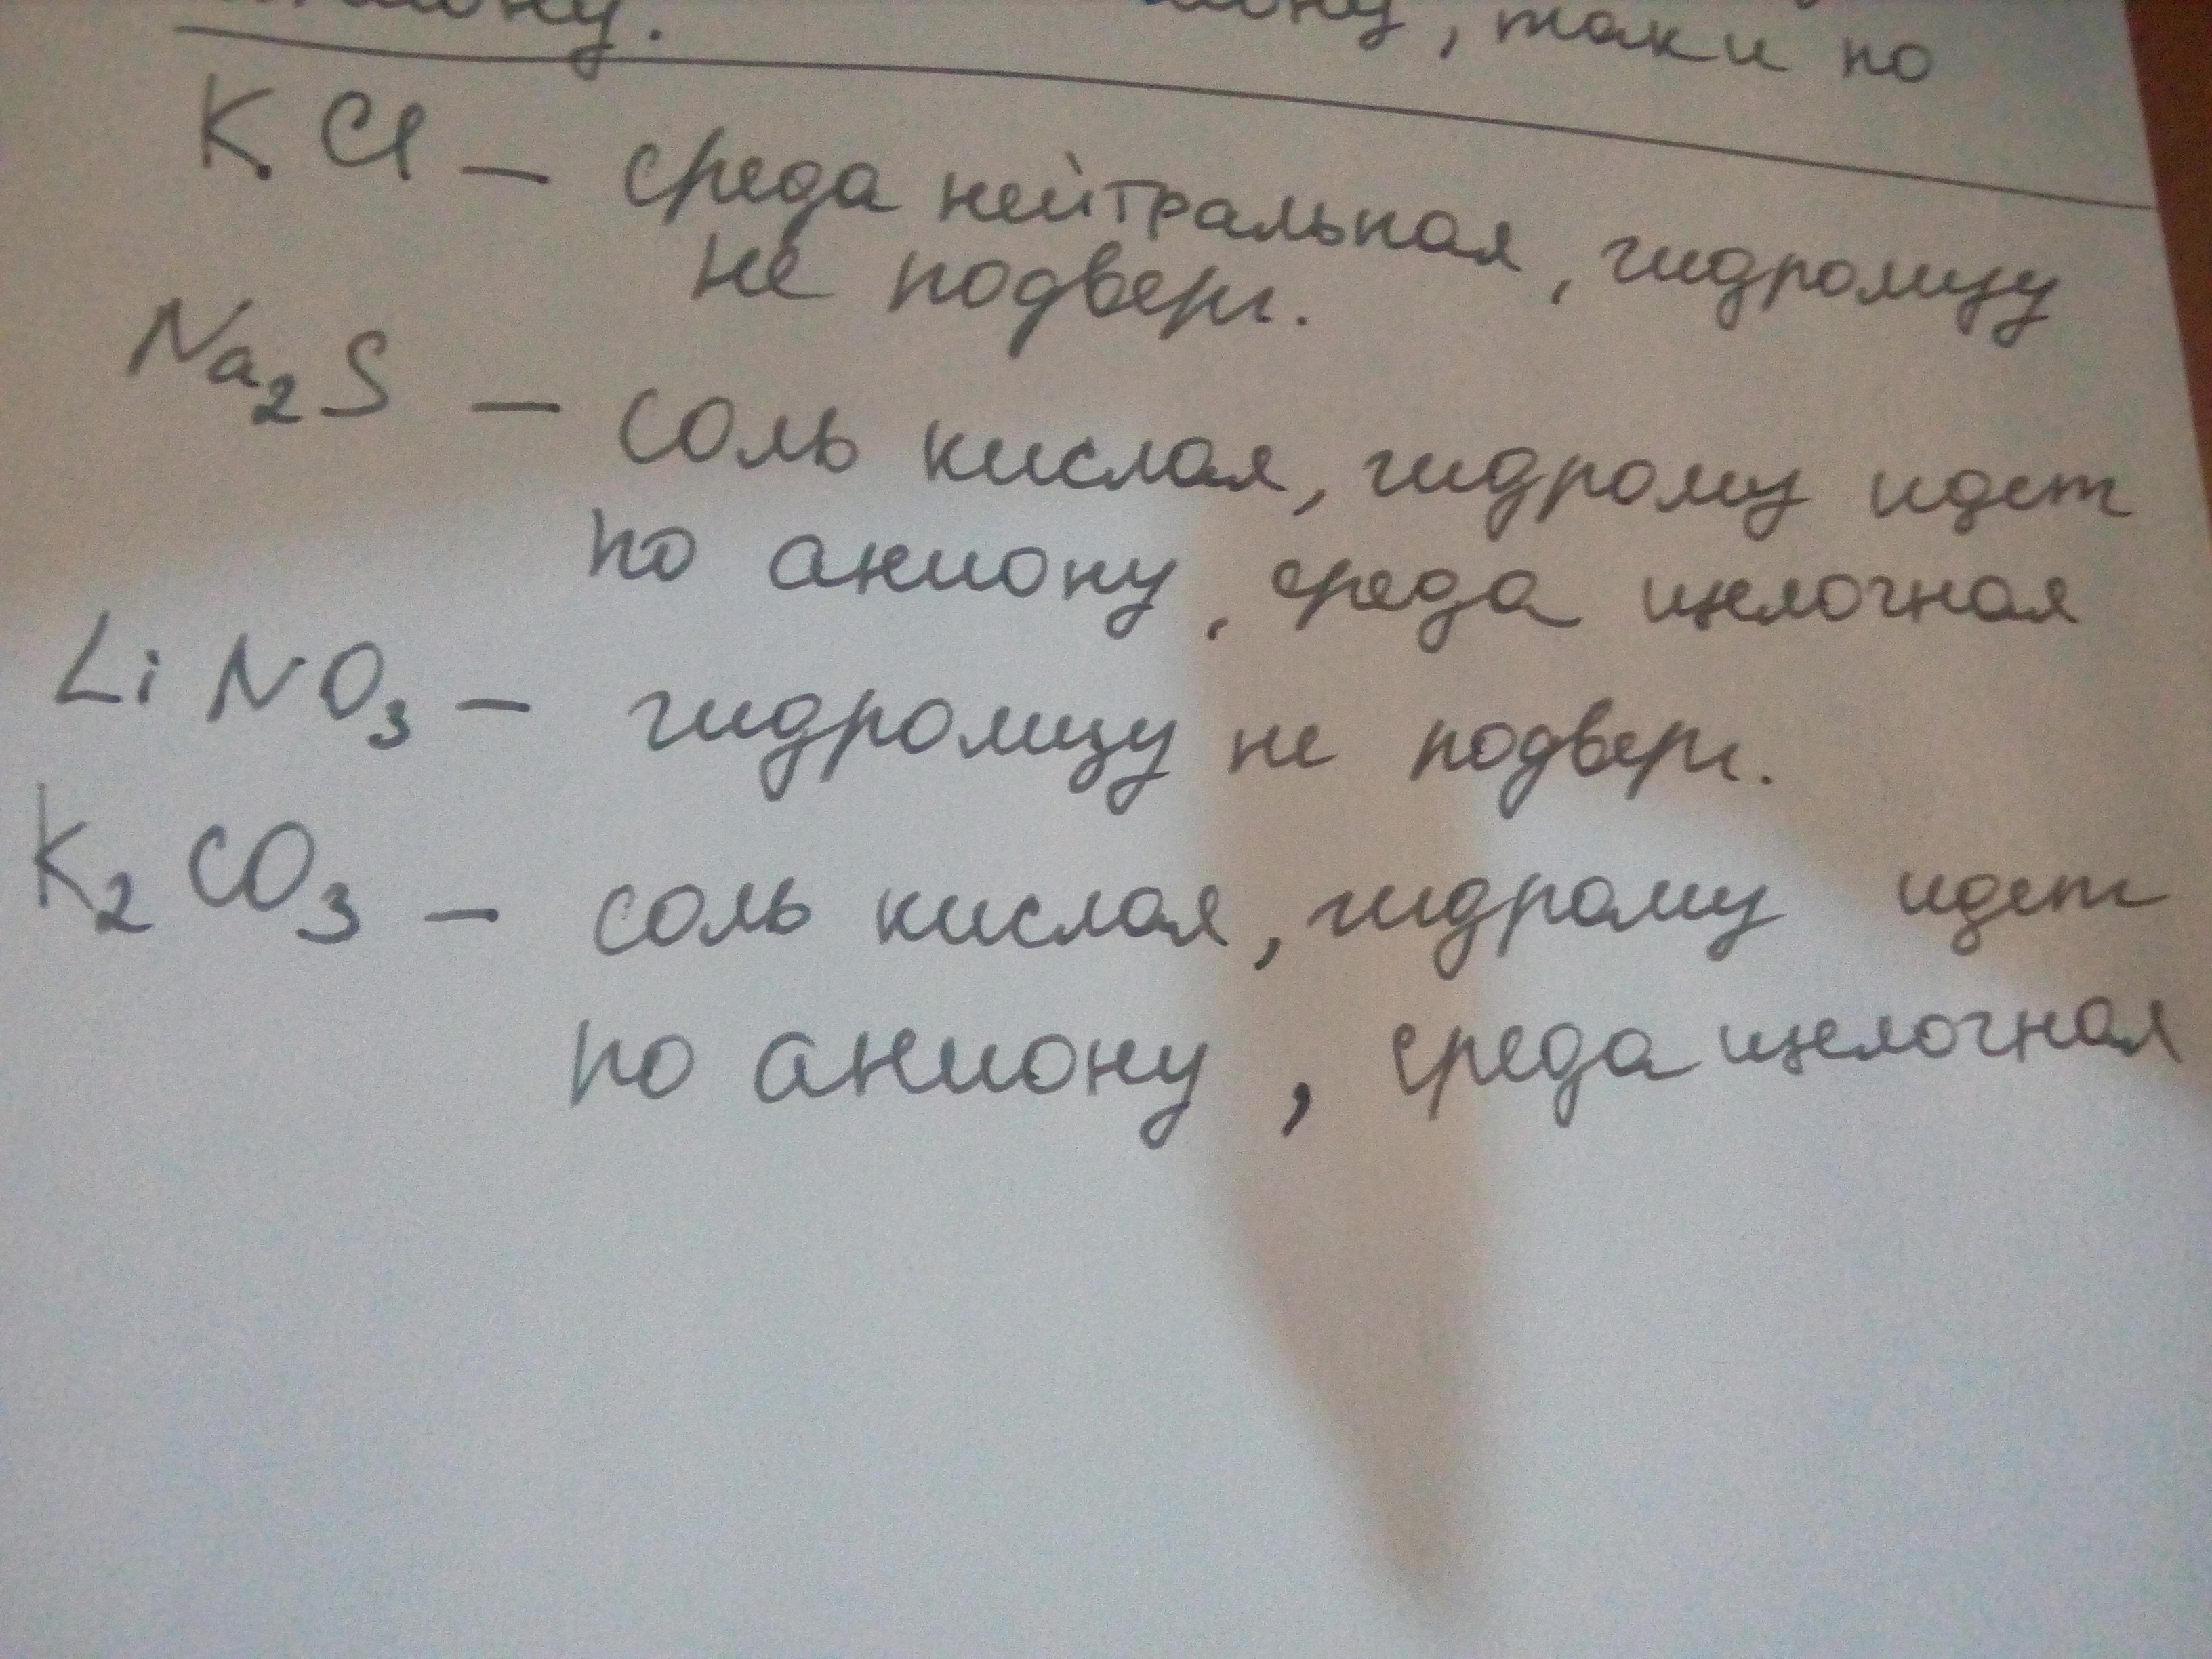 , так и по
KCl — среда нейтральная, гидролизу
не подверг.
Na₂S — соль кислая, гидролиз идет
по аниону, среда щелочная
LiNO₃ — гидролизу не подверг.
K₂CO₃ — соль кислая, гидролиз идет
по аниону, среда щелочная